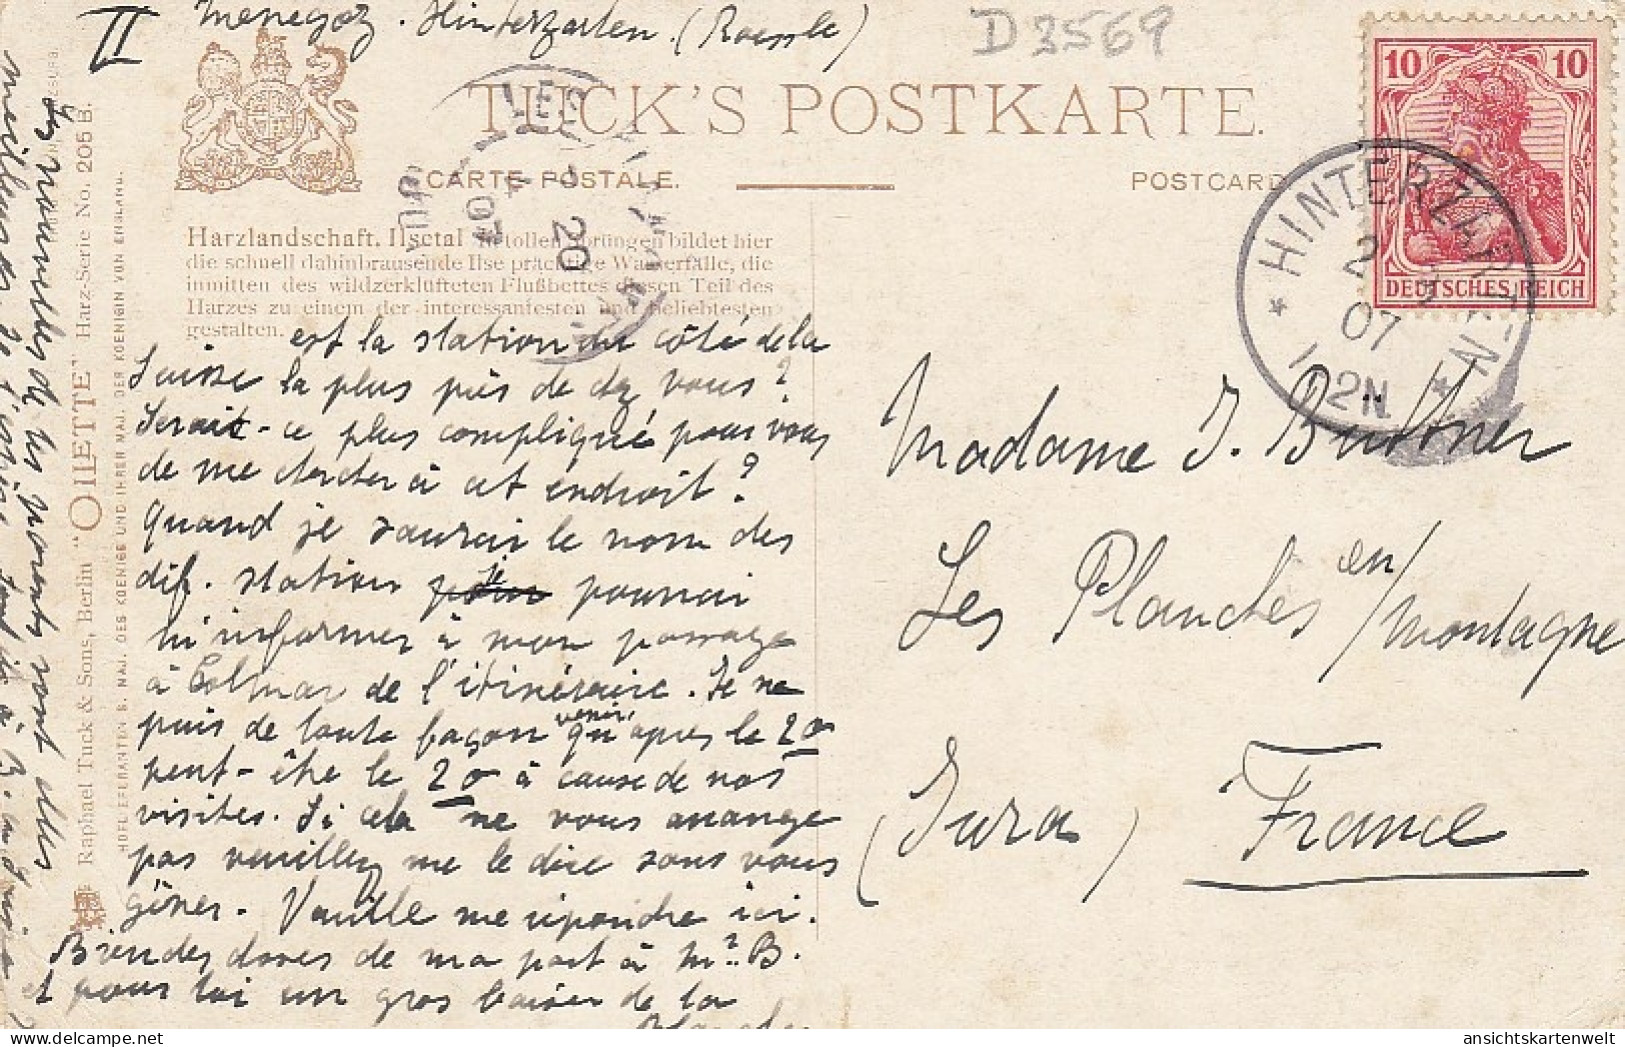 II
Menegoz. Hinterzarten. (Roessle)
D 3569
TUCK'S POSTKARTE.
CARTE POSTALE.
POSTCARD
Harzlandschaft. Ilsetal. In tollen Sprüngen bildet hier
die schnell dahinbrausende Ilse prächtige Wasserfälle, die
inmitten des wildzerklüfteten Flußbettes diesen Teil des
Harzes zu einem der interessantesten und beliebtesten
gestalten.
est la station du côté de la
Suisse la plus près de chez vous?
Serait-ce plus compliqué pour vous
de me chercher à cet endroit?
Quand je saurai le nom des
dif. station pourrai
m'informer à mon passage
à Colmar de l'itinéraire. Je ne
puis de toute façon venir qu'après le 20
peut-être le 20 à cause de nos
visites. Si cela ne vous arrange
pas veuillez me le dire sans vous
gêner. Veuille me répondre ici.
Bien des choses de ma part à Mr. B.
et pour toi un gros baiser de la
Madame J. Buttner
Les Planches en/montagne
(Jura)
France
10 10
DEUTSCHES REICH
* HINTERZARTEN *
2 3
07
12N
07
20
Raphael Tuck & Sons, Berlin "OILETTE" Harz-Serie No. 205 B.
HOFLIEFERANTEN S. MAJ. DES KOENIGS UND IHRER MAJ. DER KOENIGIN VON ENGLAND.
les nouvelles de tes parents sont elles
meilleures. Je l'espère
ansichtskartenwelt